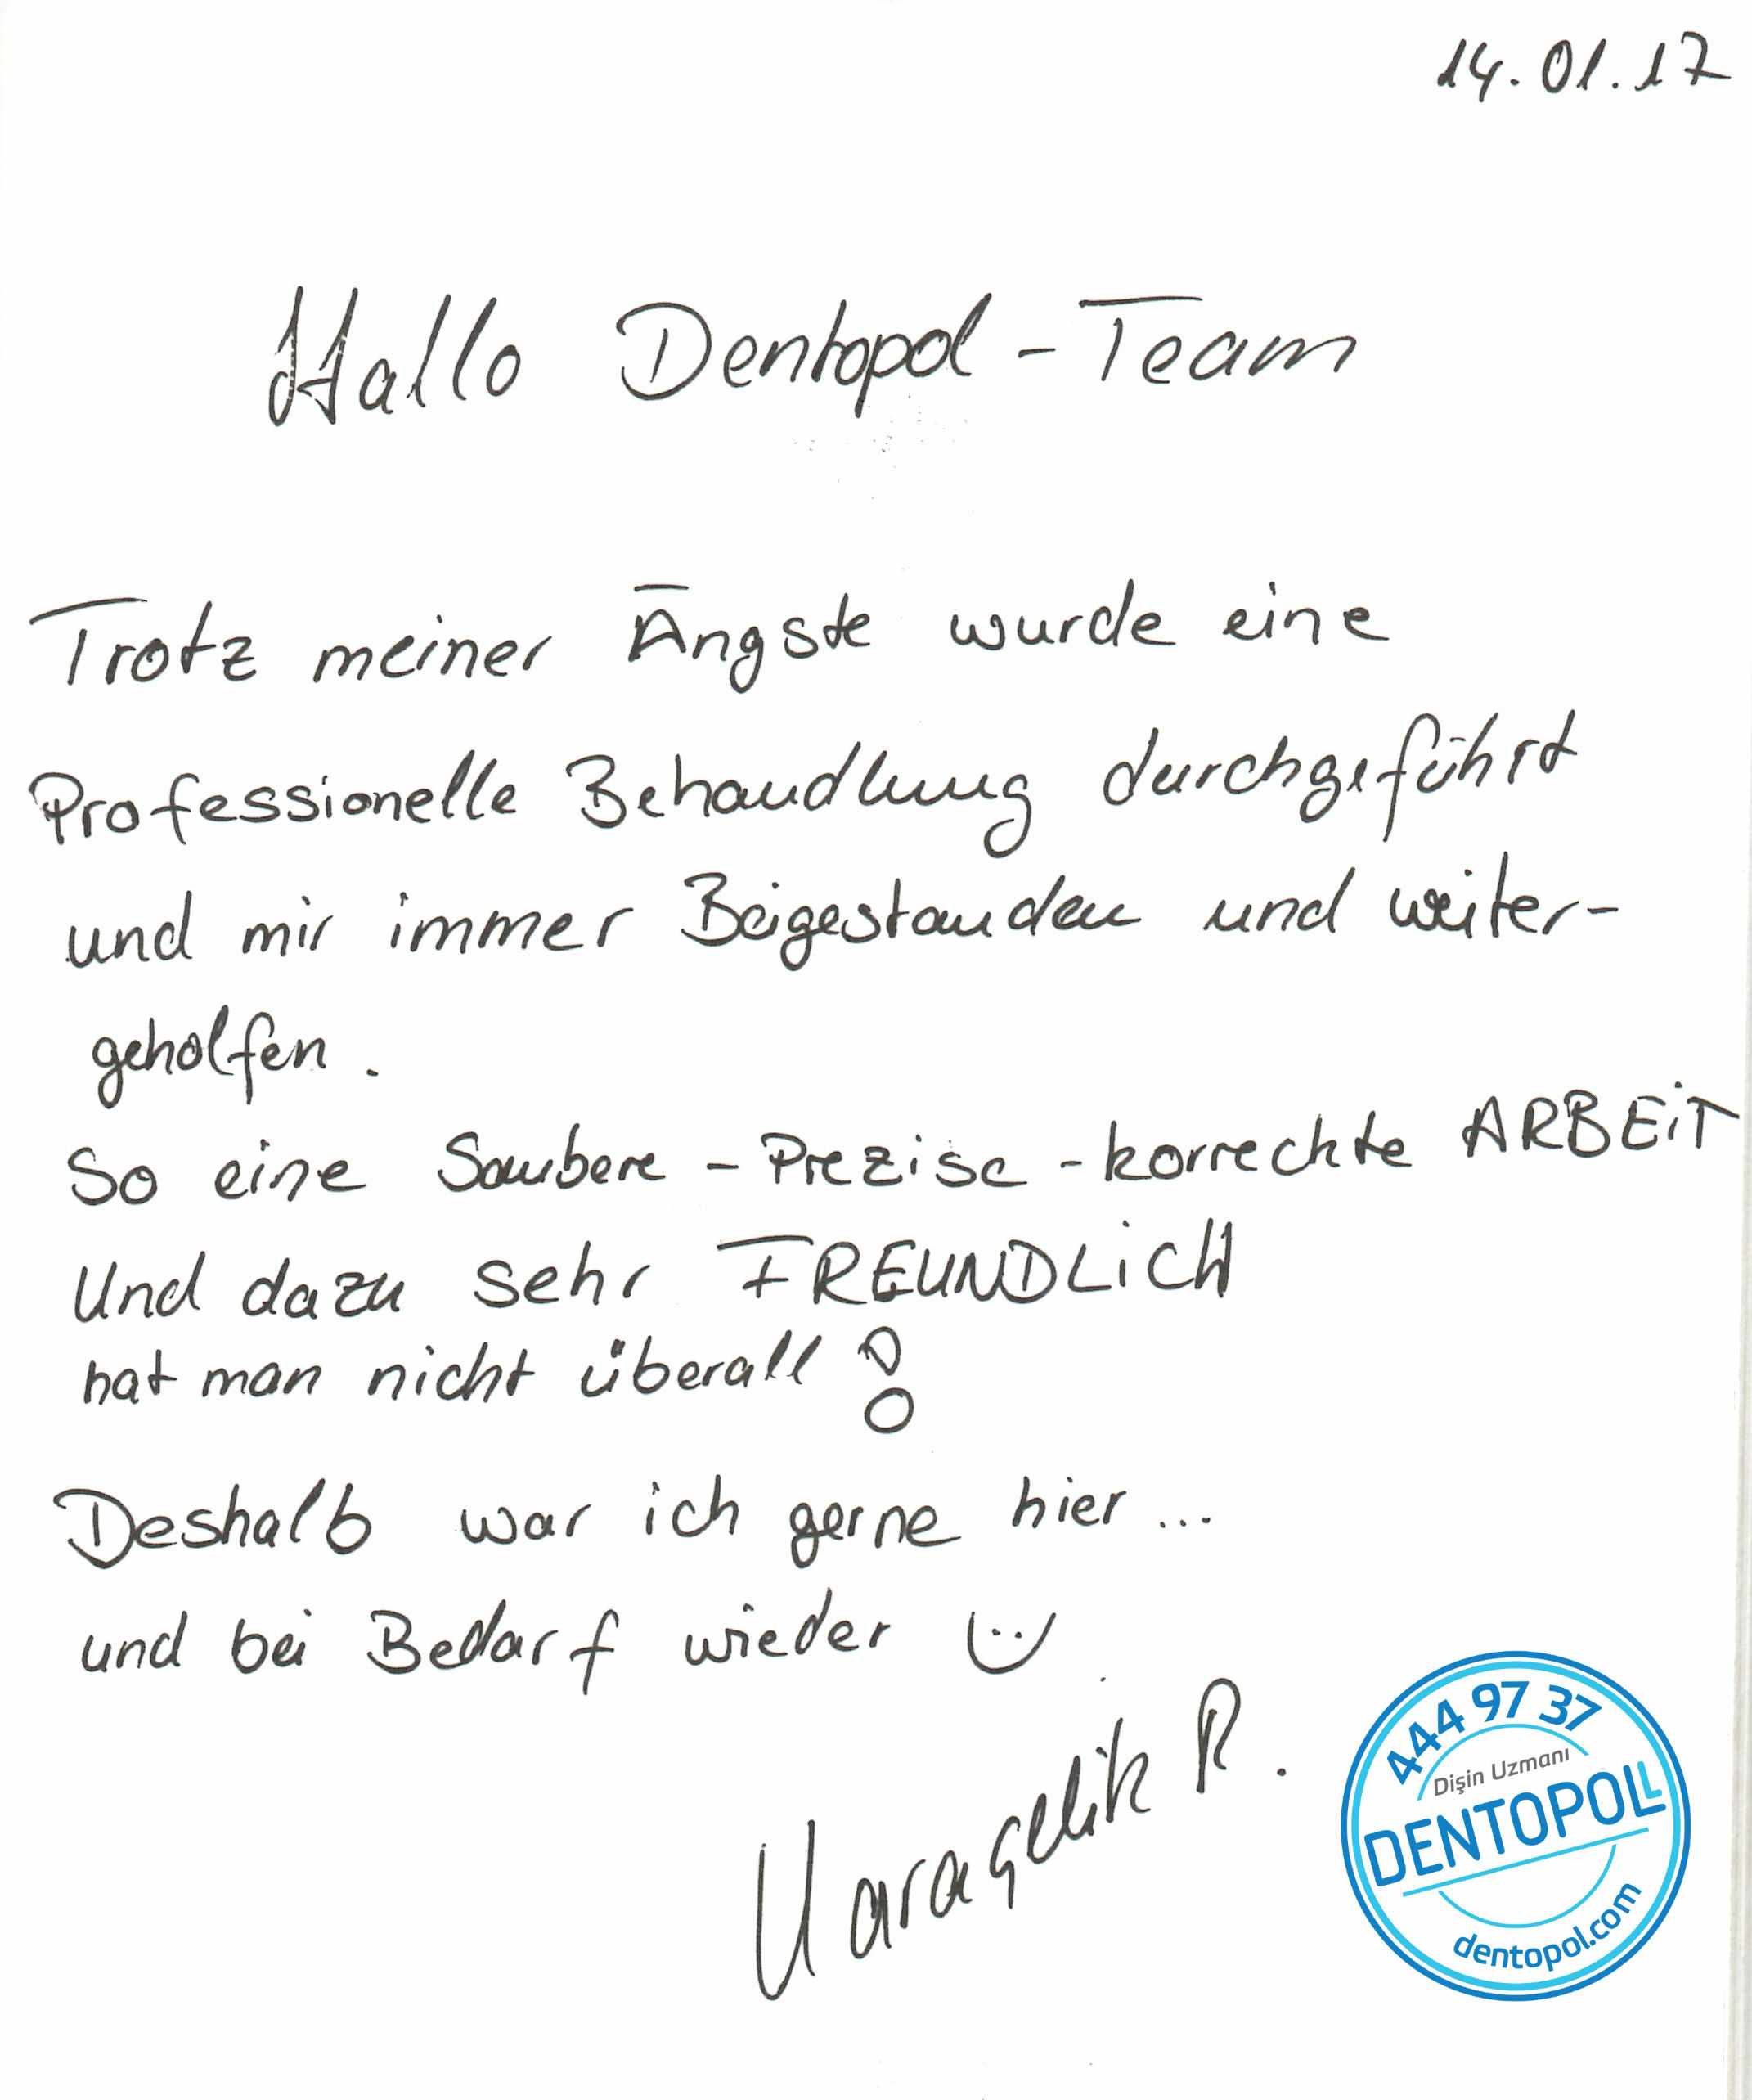 14.01.17
Hallo Dentopol-Team
Trotz meiner Ängste wurde eine
Professionelle Behandlung durchgeführt
und mir immer Beigestanden und weiter-
geholfen.
So eine Saubere - Prezise - korreckte ARBEiT
Und dazu sehr FREUNDLiCH
hat man nicht überall!
Deshalb war ich gerne hier...
und bei Bedarf wieder
Karaçelik R.
444 97 37
Dişin Uzmanı
DENTOPOL
dentopol.com